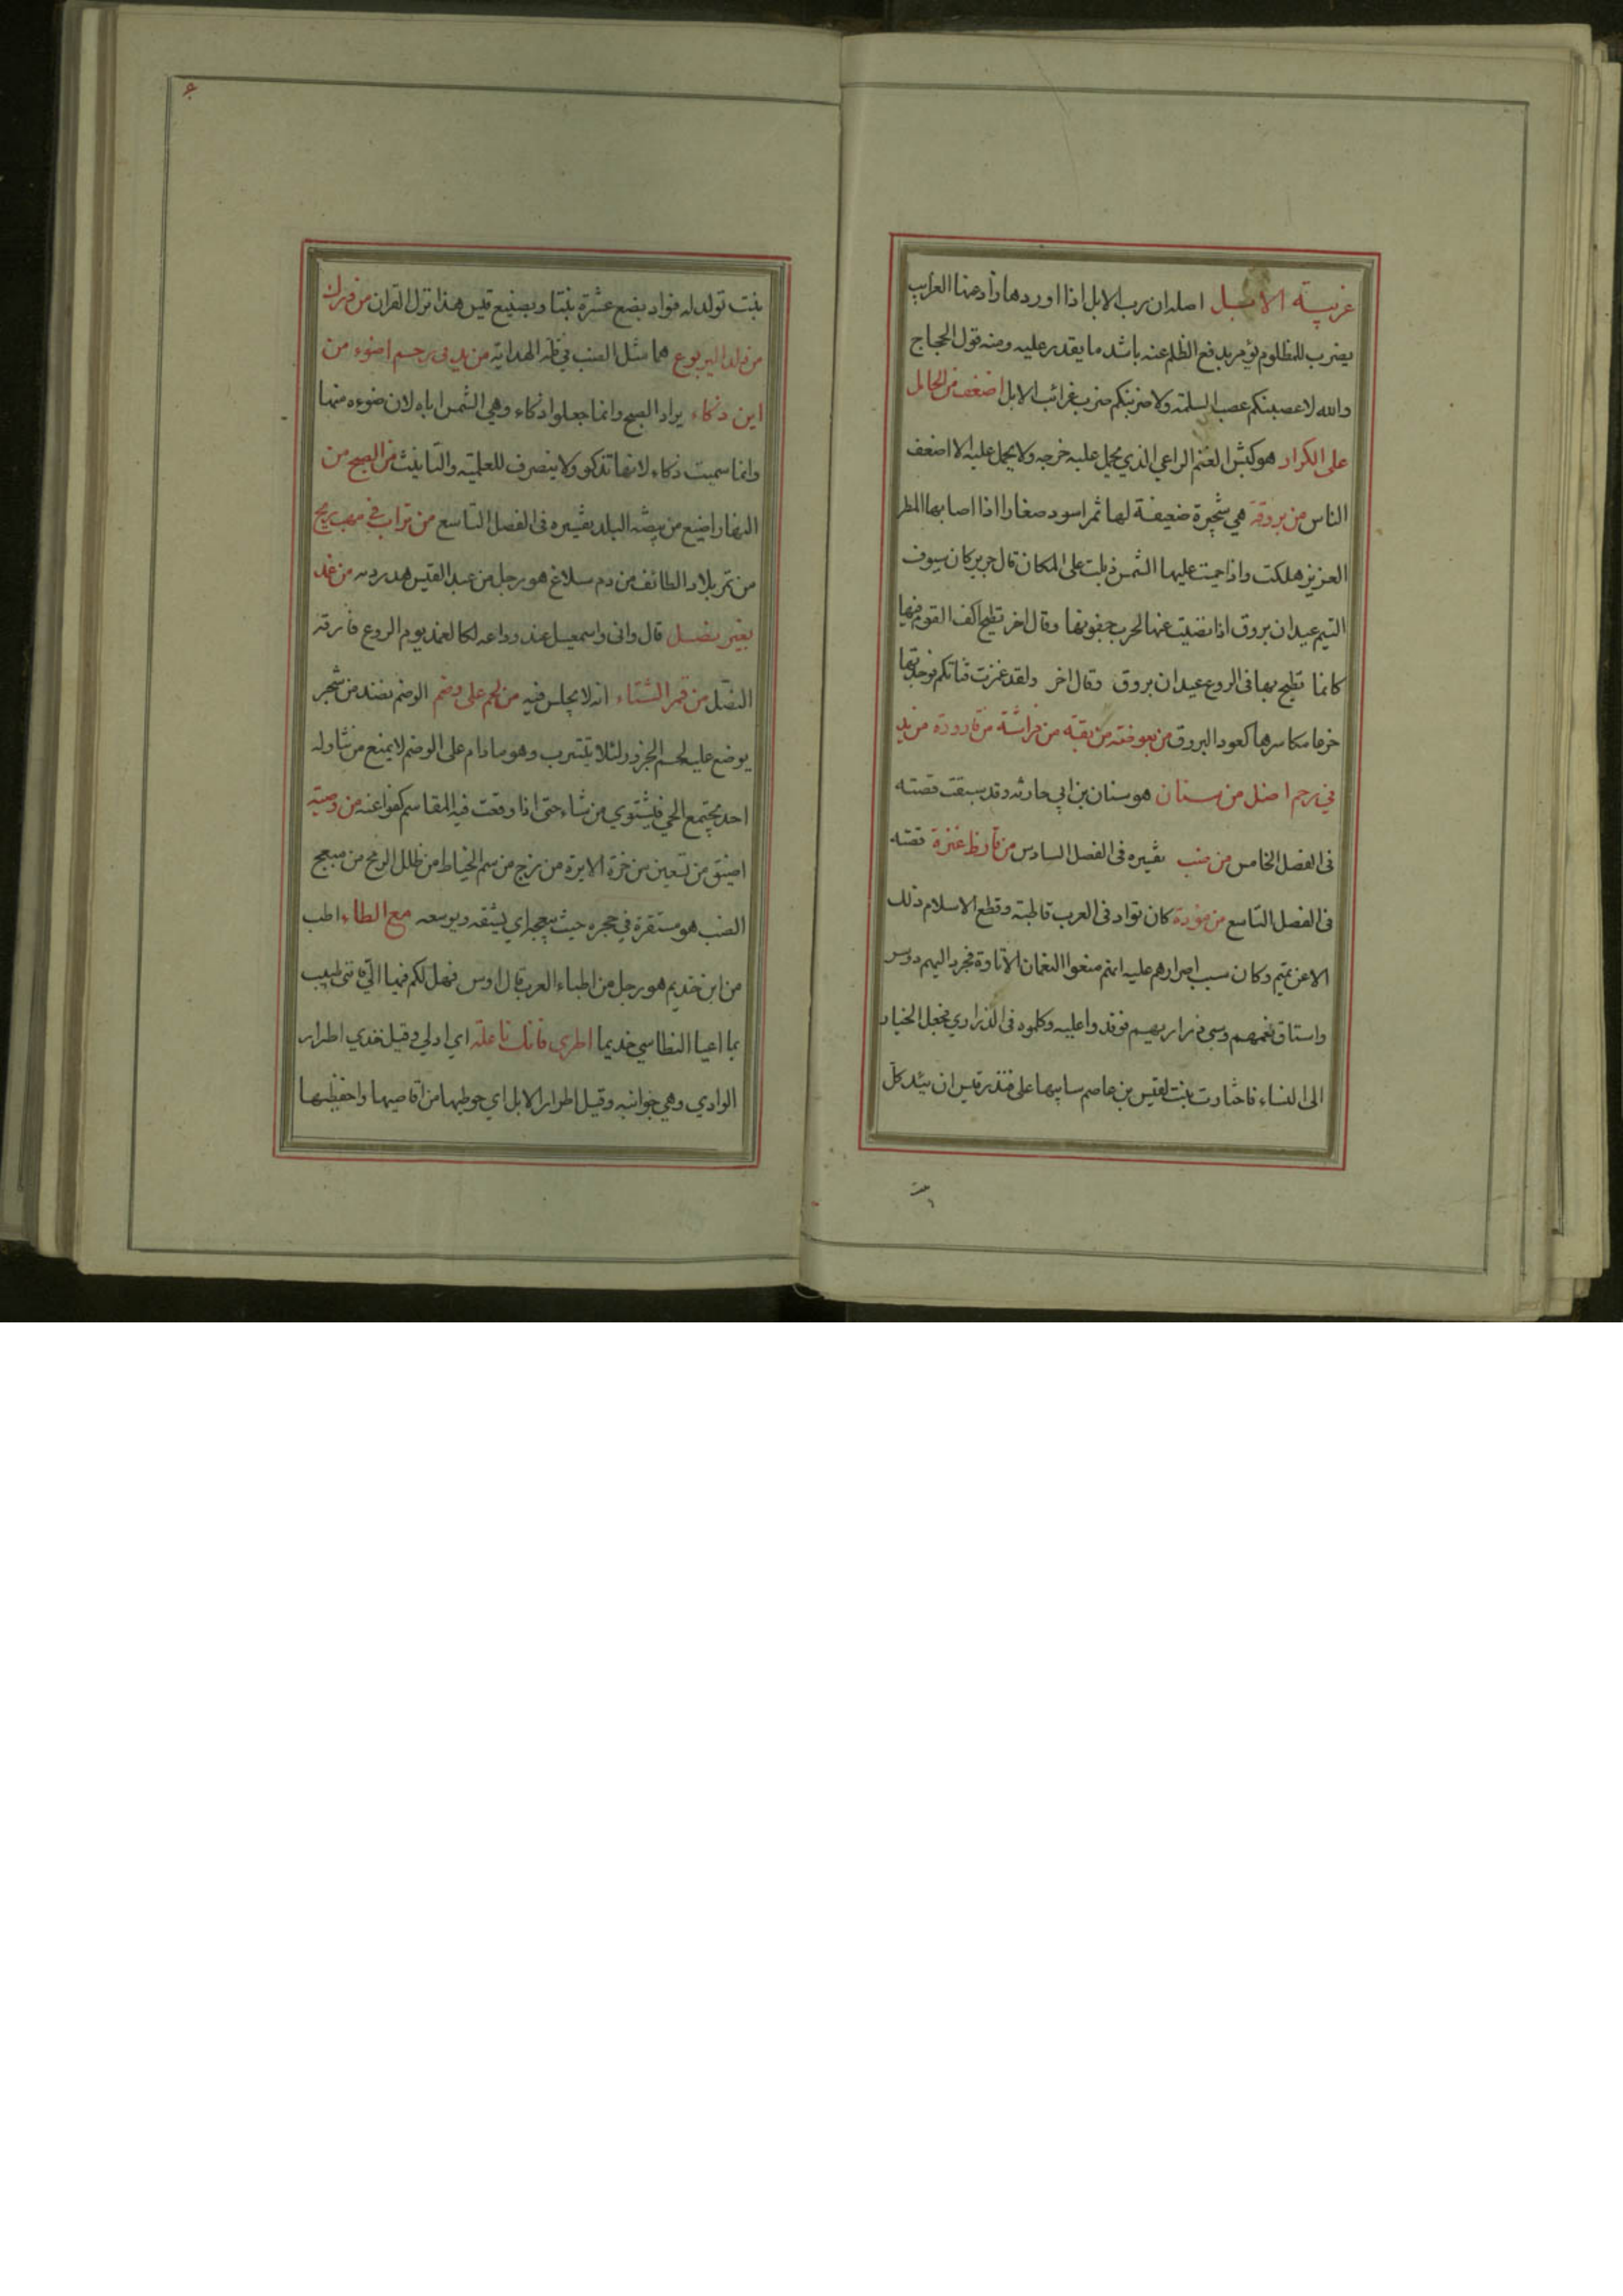 غريبة الابل اصله ان رب الابل اذا اوردها ذاد عنها الغرايب
يضرب للمظلوم يؤمر بدفع الظلم عنه باشد ما يقدر عليه ومنه قول الحجاج
والله لاعصبنكم عصب السلمة ولاضربنكم ضرب غرائب الابل اضعف من الحامل
على الكرار هو كبش الغنم الراعي الذي يحمل عليه خرجه ولا يحمل عليه الا اضعف
الناس من بروقة هي شجيرة ضعيفة لها ثمر اسود صغار اذا اصابها المطر
العزيز هلكت واذا حميت عليها الشمس ذبلت على المكان قال جرير كان سيوف
التيم عيدان بروق اذا نضيت عنها لحرب جفونها وقال اخر تطيح اكف القوم فيها
كانما تطيح بها في الروع عيدان بروق وقال اخر ولقد غمزت قناتكم فوجدتها
خرعا مكاسرها كعود البروق من بعوضة من بقة من فراشة من قارورة من يد
في رحم اضل من سنان هو سنان بن ابي حارثه وقد سبقت قصته
في الفصل الخامس من ضب تفسيره في الفصل السادس من قارظ عنزة قصته
في الفصل التاسع من موؤدة كان تواد في العرب قاطبة وقطع الاسلام ذلك
الا عن تميم وكان سبب اصرارهم عليه انهم منعوا النعمان الاتاوة فجرد اليهم دوسر
واستاق نعمهم وسبى ذراريهم فوفدوا عليه وكلموه في الذراري فجعل الخيار
الى النساء فاختارت بنت لقيس بن عاصم سابيها على فنذر قيس ان يئد كل
بنت
بنت تولد له فواد بضع عشرة بنتا وبصنيع قيس هذا نزل القران من ورل
من ولد اليربوع هما مثل الضب في قلة الهداية من يد في رحم اضوء من
ابن ذكاء يراد الصبح وانما جعلوا ذكاء وهي الشمس اباه لان ضوءه منها
وانما سميت ذكاء لانها تذكو ولا ينصرف للعلمية والتانيث من الصبح من
النهار اضيع من بيضة البلد تفسيره في الفصل التاسع من تراب في مهب ريح
من تمر بلاد الطائف من دم سلاغ هو رجل من عبد القيس هدر دمه من غمد
بغير نصل قال واني واسمعيل عند وداعه لكالغمد يوم الروع فارقه
النصل من قمر الشتاء انه لا يجلس فيه من لحم على وضم الوضم نضد من شجر
يوضع عليه لحم الجزور لئلا يتترب وهو ما دام على الوضم لا يمنع من تناوله
احد يجتمع الحي فيشتوي من شاء حتى اذا وقعت فيه المقاسم كفوا عنه من وصية
اضيق من تسعين من خرة الابرة من زج من سم الخياط من ظلل الرمح من مبعج
الضب هو مستقرة في جحره حيث يبعجه اي يشقه ويوسعه مع الطاء اطب
من ابن حذيم هو رجل من اطباء العرب قال اوس فهل لكم فيها الي فانني طبيب
بما اعيا النطاسي حذيما اطري فانك ناعلة اي ادلي وقيل خذي اطرار
الوادي وهي جوانبه وقيل اطرار الابل اي حوطيها من اقاصيها واحفظيها